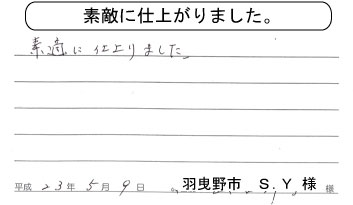 素敵に仕上がりました。
素適に仕上りました。
平成 23年 5月 9日 羽曳野市 S．Y 様 様